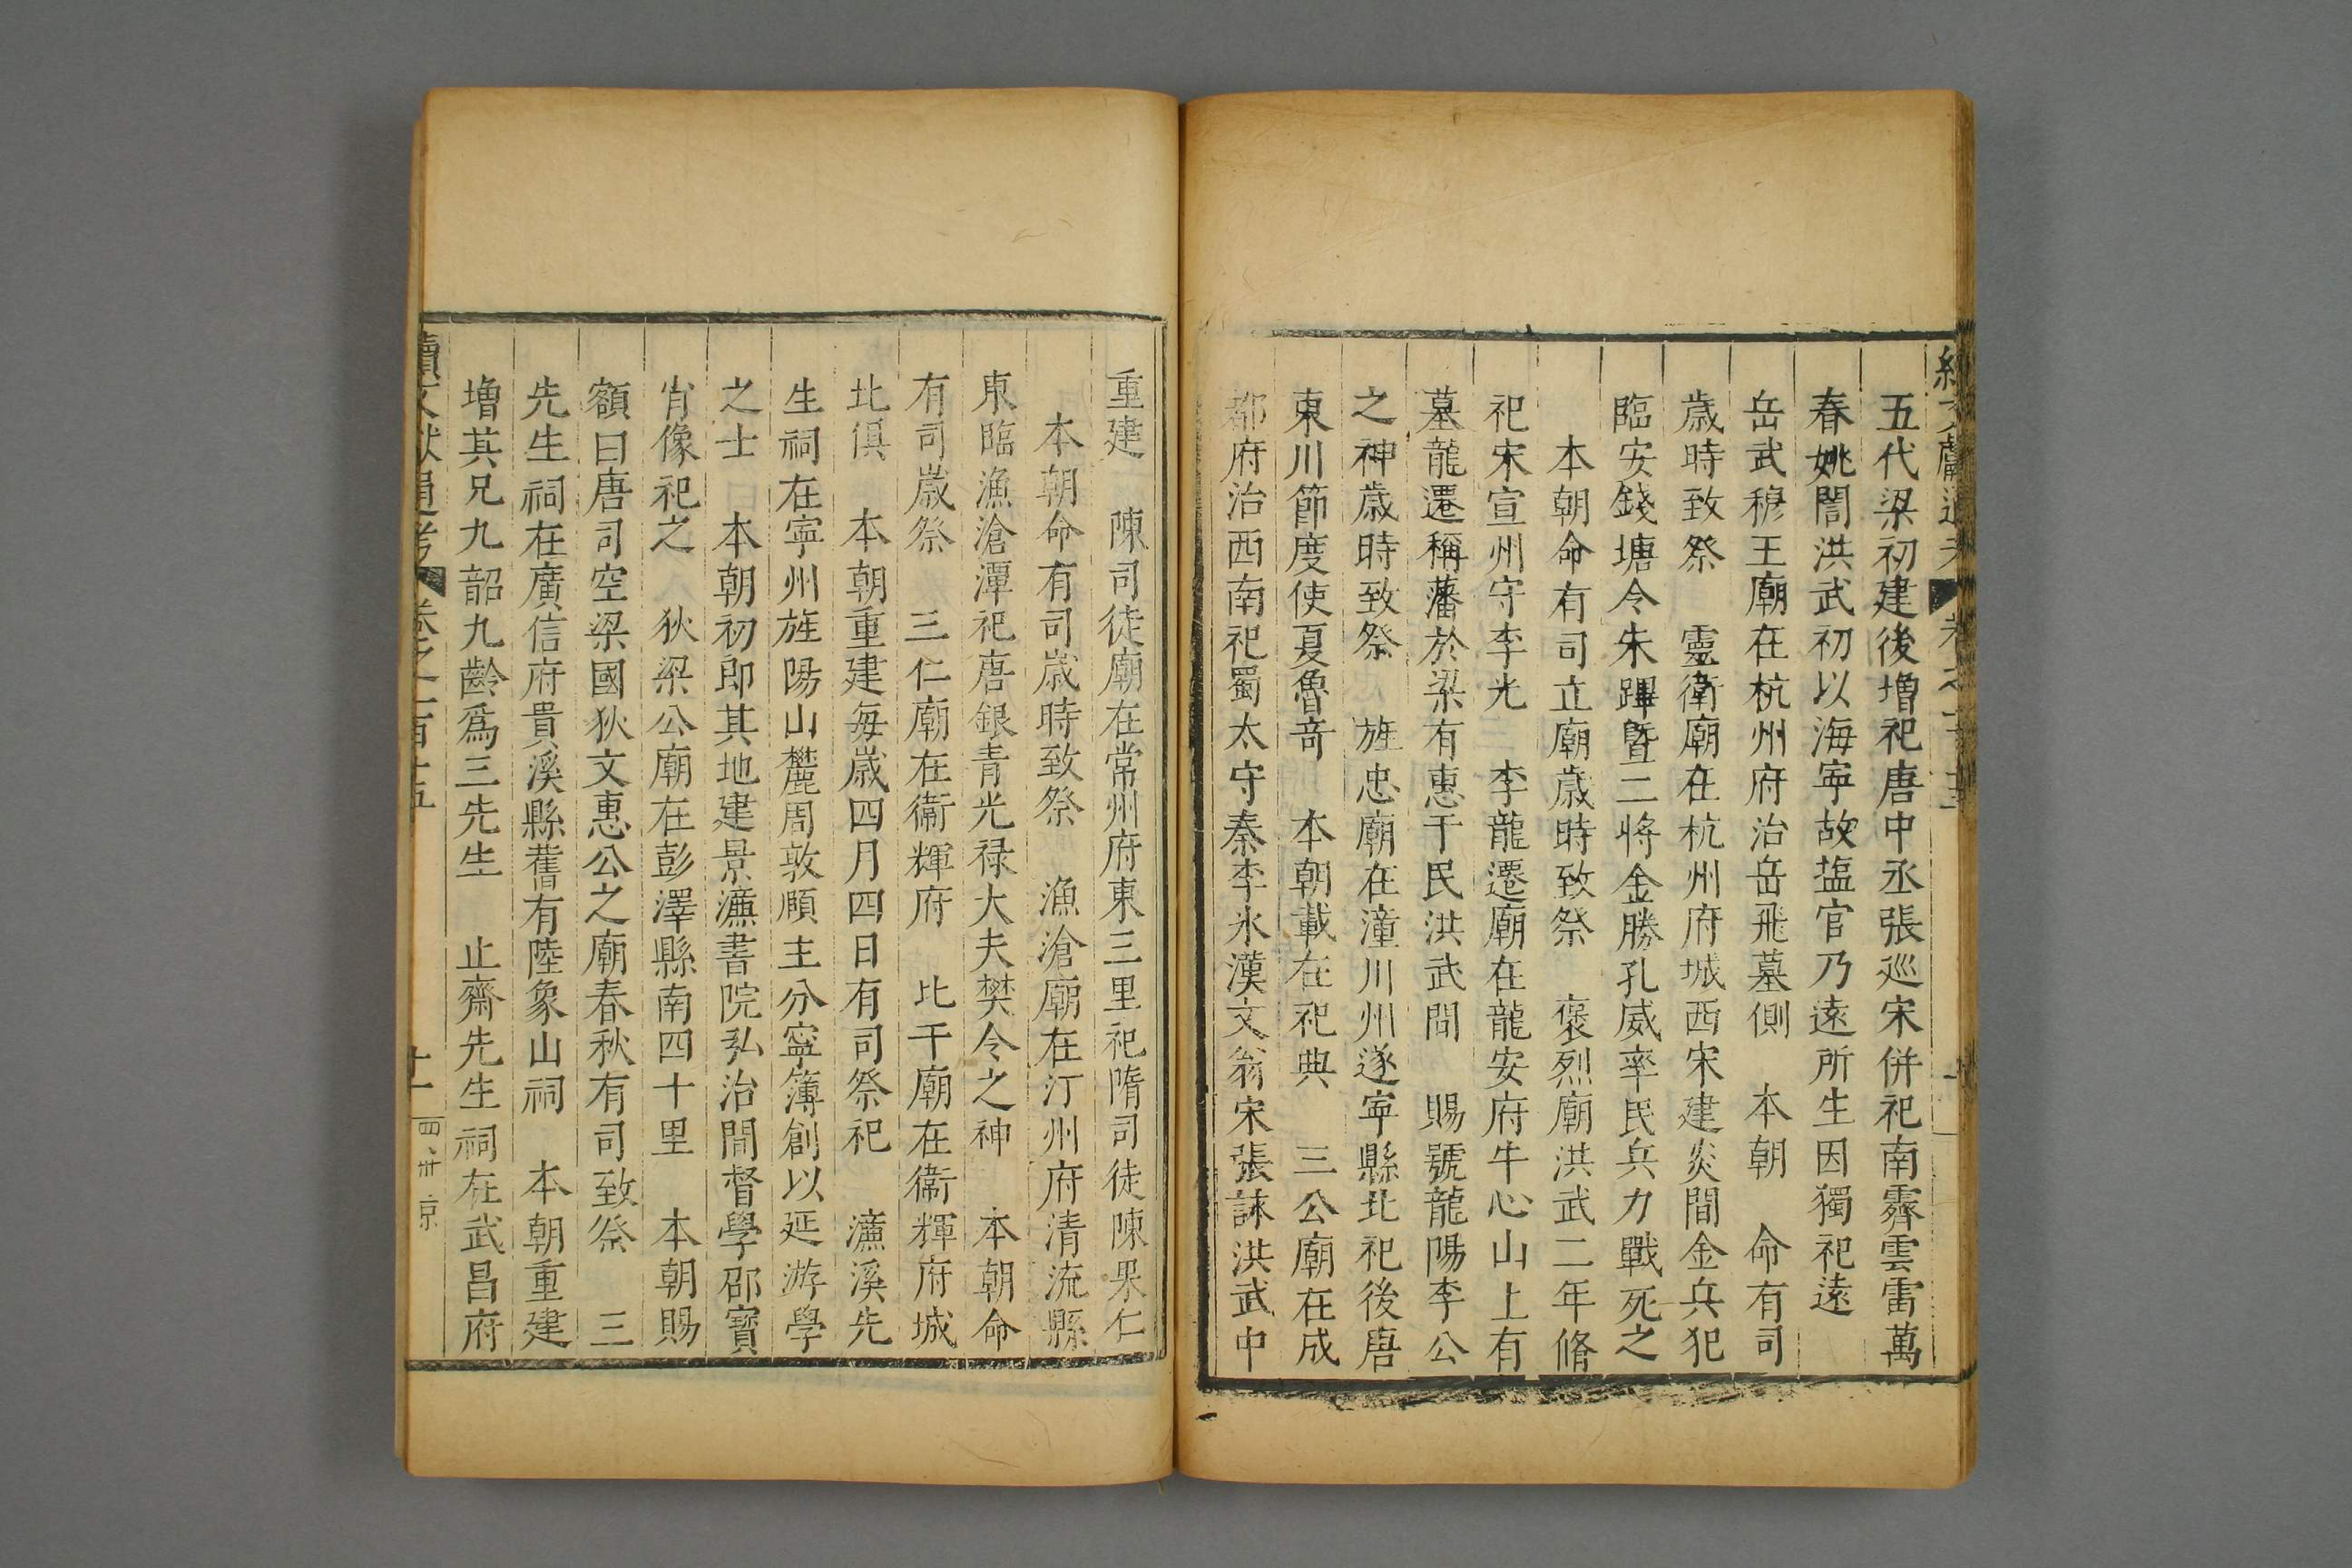 五代梁初建後増祀唐中丞張巡宋併祀南霽雲雷萬
春姚誾洪武初以海寧故塩官乃遠所生因獨祀遠
岳武穆王廟在杭州府治岳飛墓側 本朝 命有司
歳時致祭 靈衛廟在杭州府城西宋建炎間金兵犯
臨安錢塘令朱蹕暨二將金勝孔威率民兵力戰死之
本朝命有司立廟歳時致祭 褒烈廟洪武二年脩
祀宋宣州守李光 李龍遷廟在龍安府牛心山上有
墓龍遷稱藩於梁有惠于民洪武間 賜號龍陽李公
之神歳時致祭 旌忠廟在潼川州遂寧縣北祀後唐
東川節度使夏魯奇 本朝載在祀典 三公廟在成
都府治西南祀蜀太守秦李氷漢文翁宋張詠洪武中
重建 陳司徒廟在常州府東三里祀隋司徒陳果仁
本朝命有司歳時致祭 漁滄廟在汀州府清流縣
東臨漁滄潭祀唐銀青光禄大夫樊令之神 本朝命
有司歳祭 三仁廟在衛輝府 比干廟在衛輝府城
北俱 本朝重建每歳四月四日有司祭祀 濂溪先
生祠在寧州旌陽山麓周敦頤主分寧簿創以延游學
之士 本朝初即其地建景濂書院弘治間督學邵寶
肖像祀之 狄梁公廟在彭澤縣南四十里 本朝賜
額曰唐司空梁國狄文惠公之廟春秋有司致祭 三
先生祠在廣信府貴溪縣舊有陸象山祠 本朝重建
増其兄九韶九齡爲三先生 止齋先生祠在武昌府
續文獻通考 卷之一百十五 十一 四·卅 京